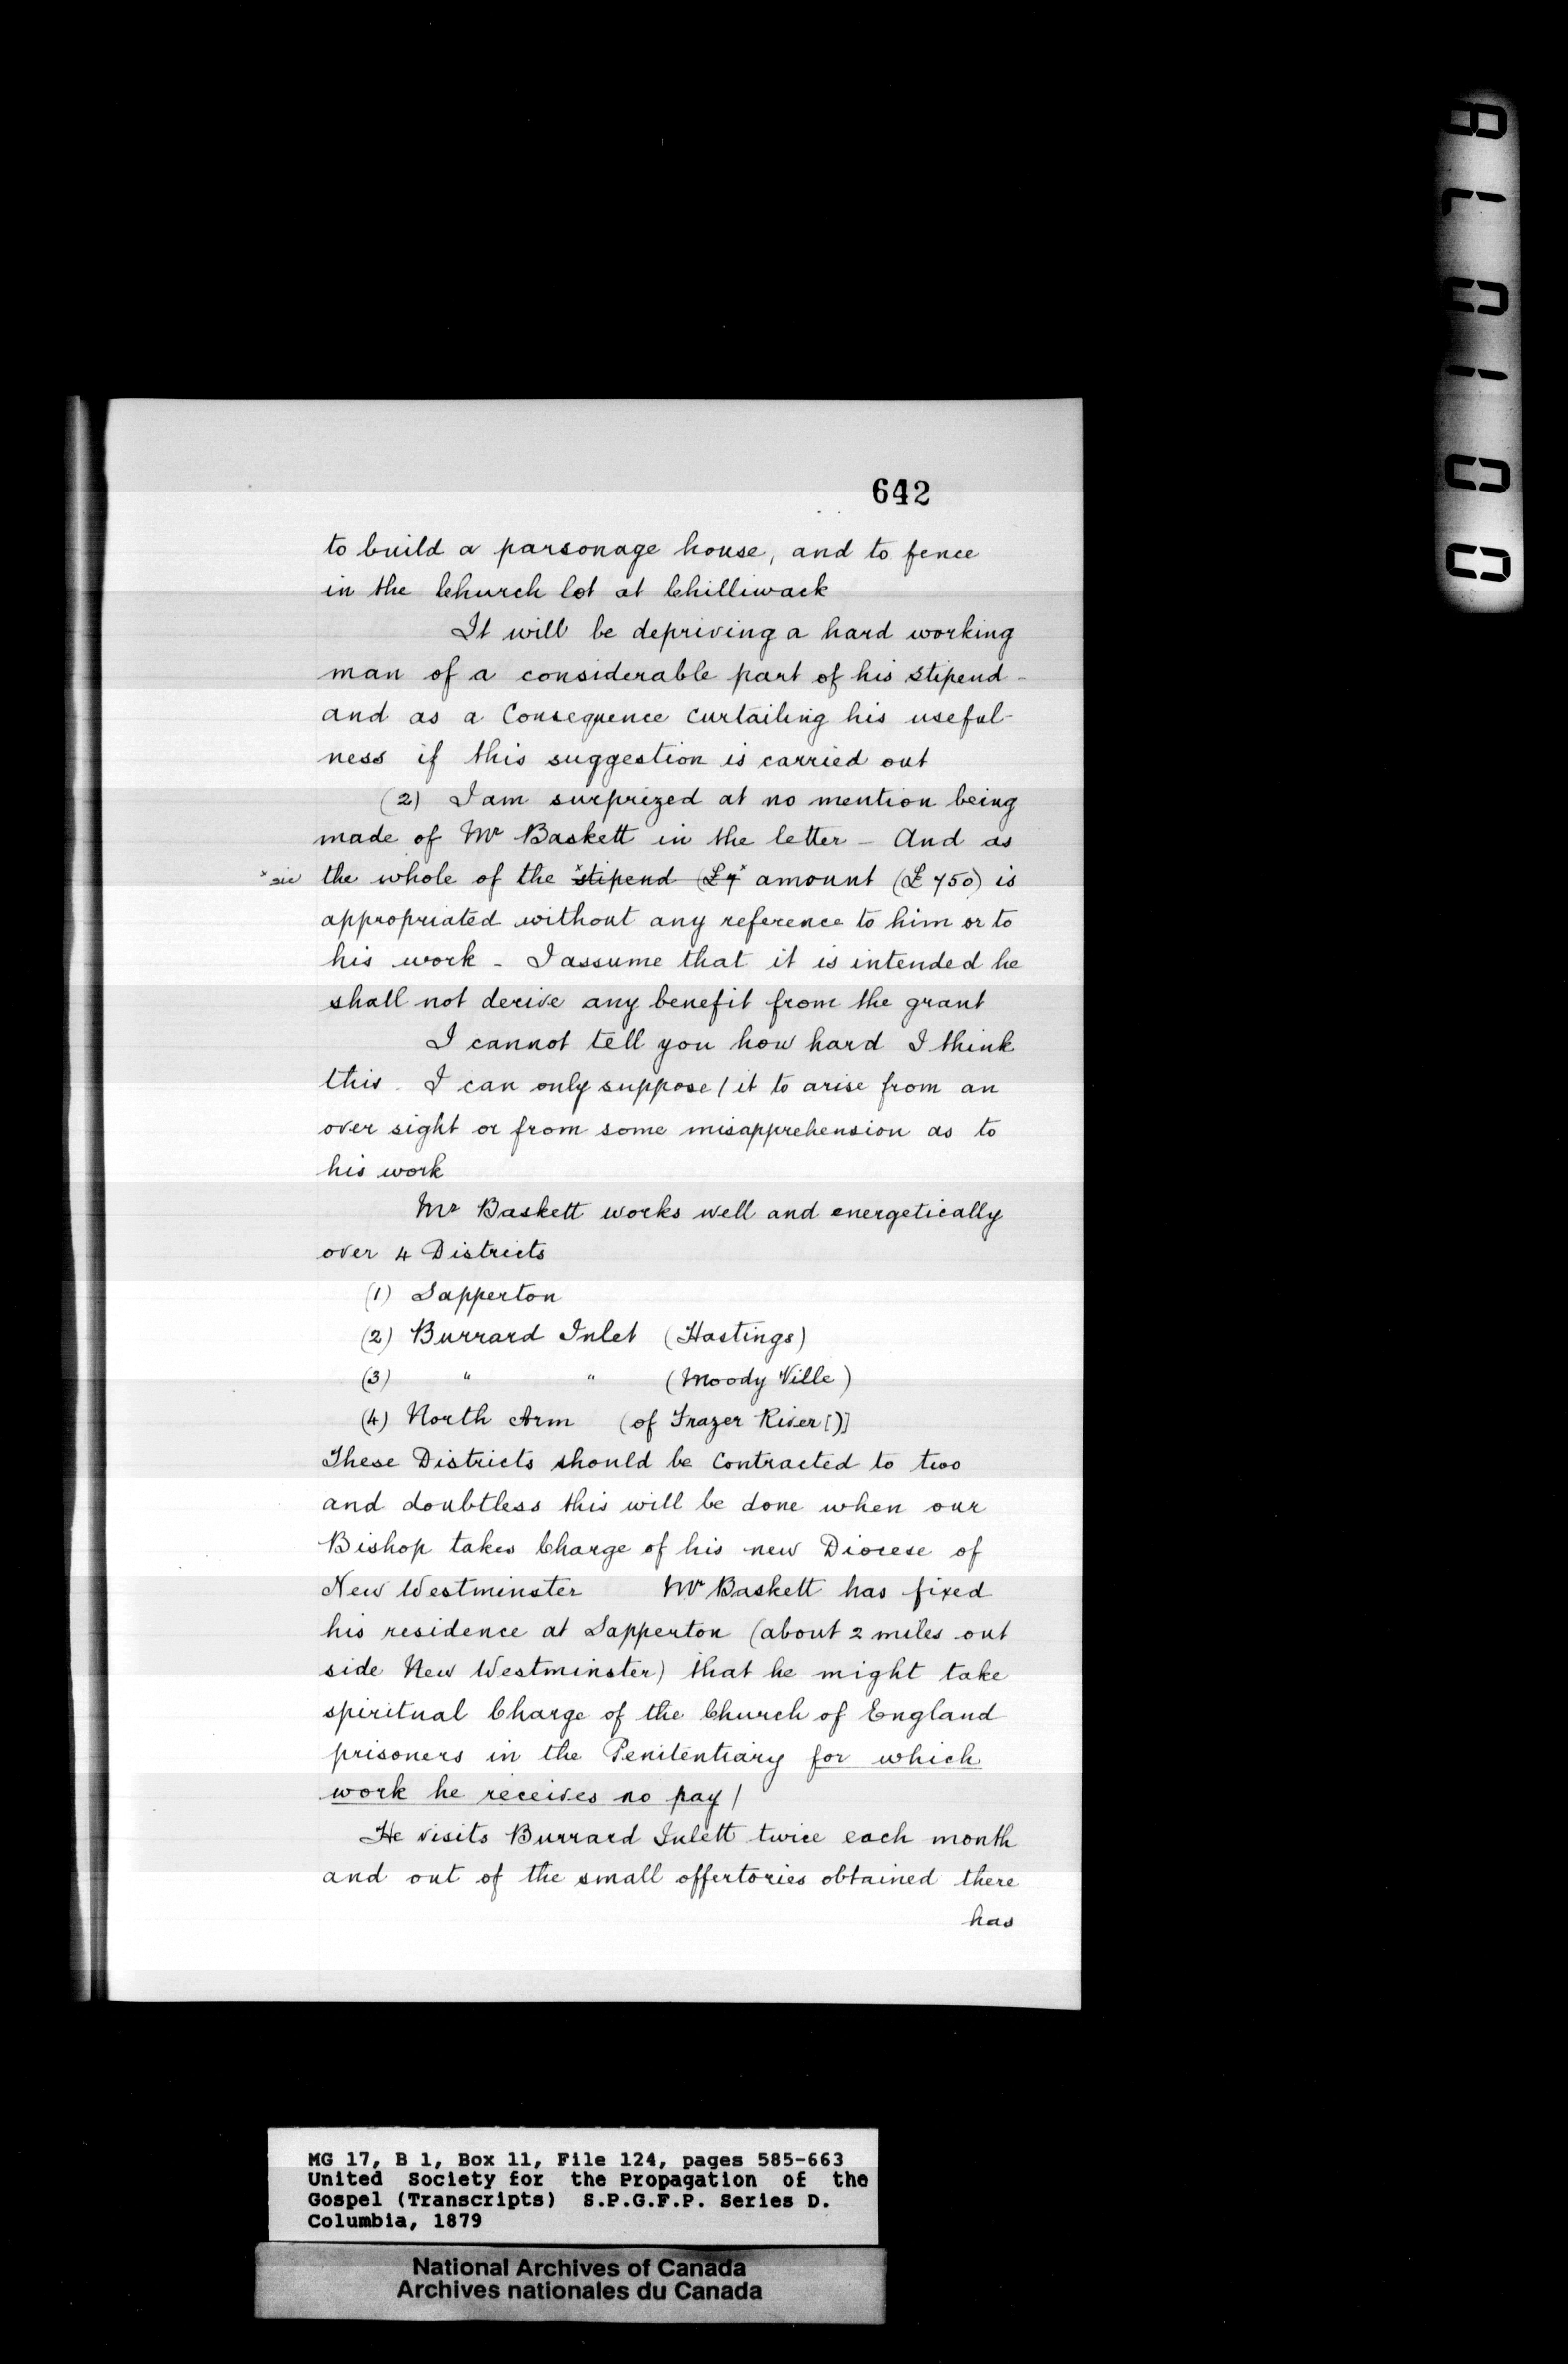 642
to build a parsonage house, and to fence
in the Church lot at Chilliwack
It will be depriving a hard working
man of a considerable part of his stipend -
and as a Consequence curtailing his useful-
ness if this suggestion is carried out
(2) I am surprized at no mention being
made of Mr Baskett in the letter - And as
x sic the whole of the xstipend (£7x amount (£750) is
appropriated without any reference to him or to
his work - I assume that it is intended he
shall not derive any benefit from the grant
I cannot tell you how hard I think
this. I can only suppose / it to arise from an
over sight or from some misapprehension as to
his work
Mr Baskett works well and energetically
over 4 Districts
(1) Sapperton
(2) Burrard Inlet (Hastings)
(3) " " (Moody Ville)
(4) North Arm (of Frazer River [)]
These Districts should be Contracted to two
and doubtless this will be done when our
Bishop takes Charge of his new Diocese of
New Westminster Mr Baskett has fixed
his residence at Sapperton (about 2 miles out
side New Westminster) that he might take
spiritual Charge of the Church of England
prisoners in the Penitentiary for which
work he receives no pay /
He visits Burrard Inlett twice each month
and out of the small offertories obtained there
has
MG 17, B 1, Box 11, File 124, pages 585-663
United Society for the Propagation of the
Gospel (Transcripts) S.P.G.F.P. Series D.
Columbia, 1879
National Archives of Canada
Archives nationales du Canada